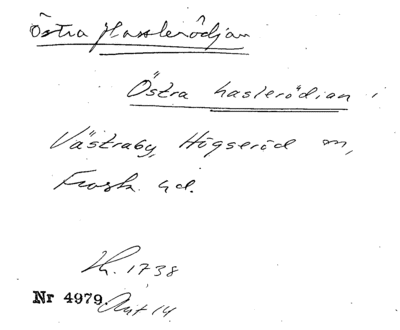 Östra Hasslerödjan
Östra hasleródian i
Västraby, Högseröd m,
Frosk hd.
Lh. 1738
Nr 4979 Akt 14